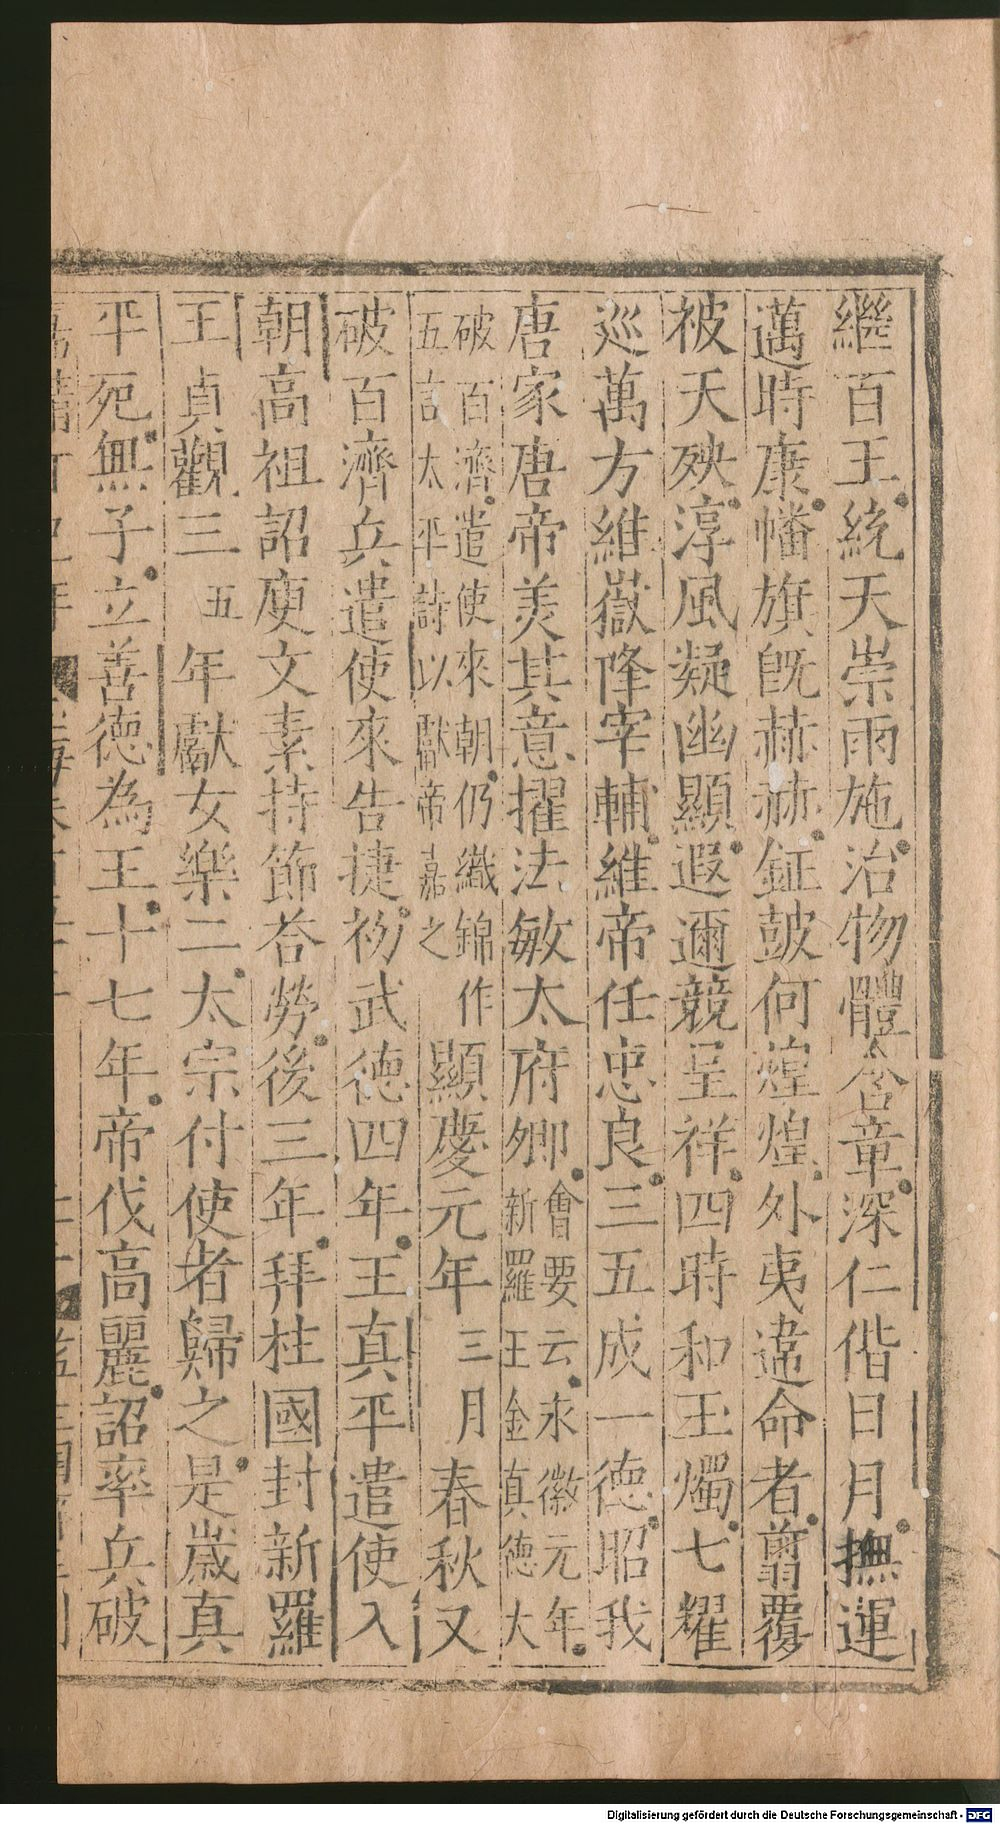 繼百王統天崇雨施治物體含章深仁偕日月撫運
邁時康幡旗旣赫赫鉦鼓何煌煌外夷違命者翦覆
被天殃淳風凝幽顯遐邇競呈祥四時和玉燭七耀
巡萬方維嶽降宰輔維帝任忠良三五成一德昭我
唐家唐帝美其意擢法敏太府卿會要云永徽元年新羅王金真德大
破百濟遣使來朝仍織錦作五言太平詩以獻帝嘉之顯慶元年三月春秋又
破百濟兵遣使來告捷初武德四年王真平遣使入
朝高祖詔庾文素持節荅勞後三年拜柱國封新羅
王貞觀三五年獻女樂二太宗付使者歸之是歲真
平死無子立善德為王十七年帝伐高麗詔率兵破
Digitalisierung gefördert durch die Deutsche Forschungsgemeinschaft - DFG